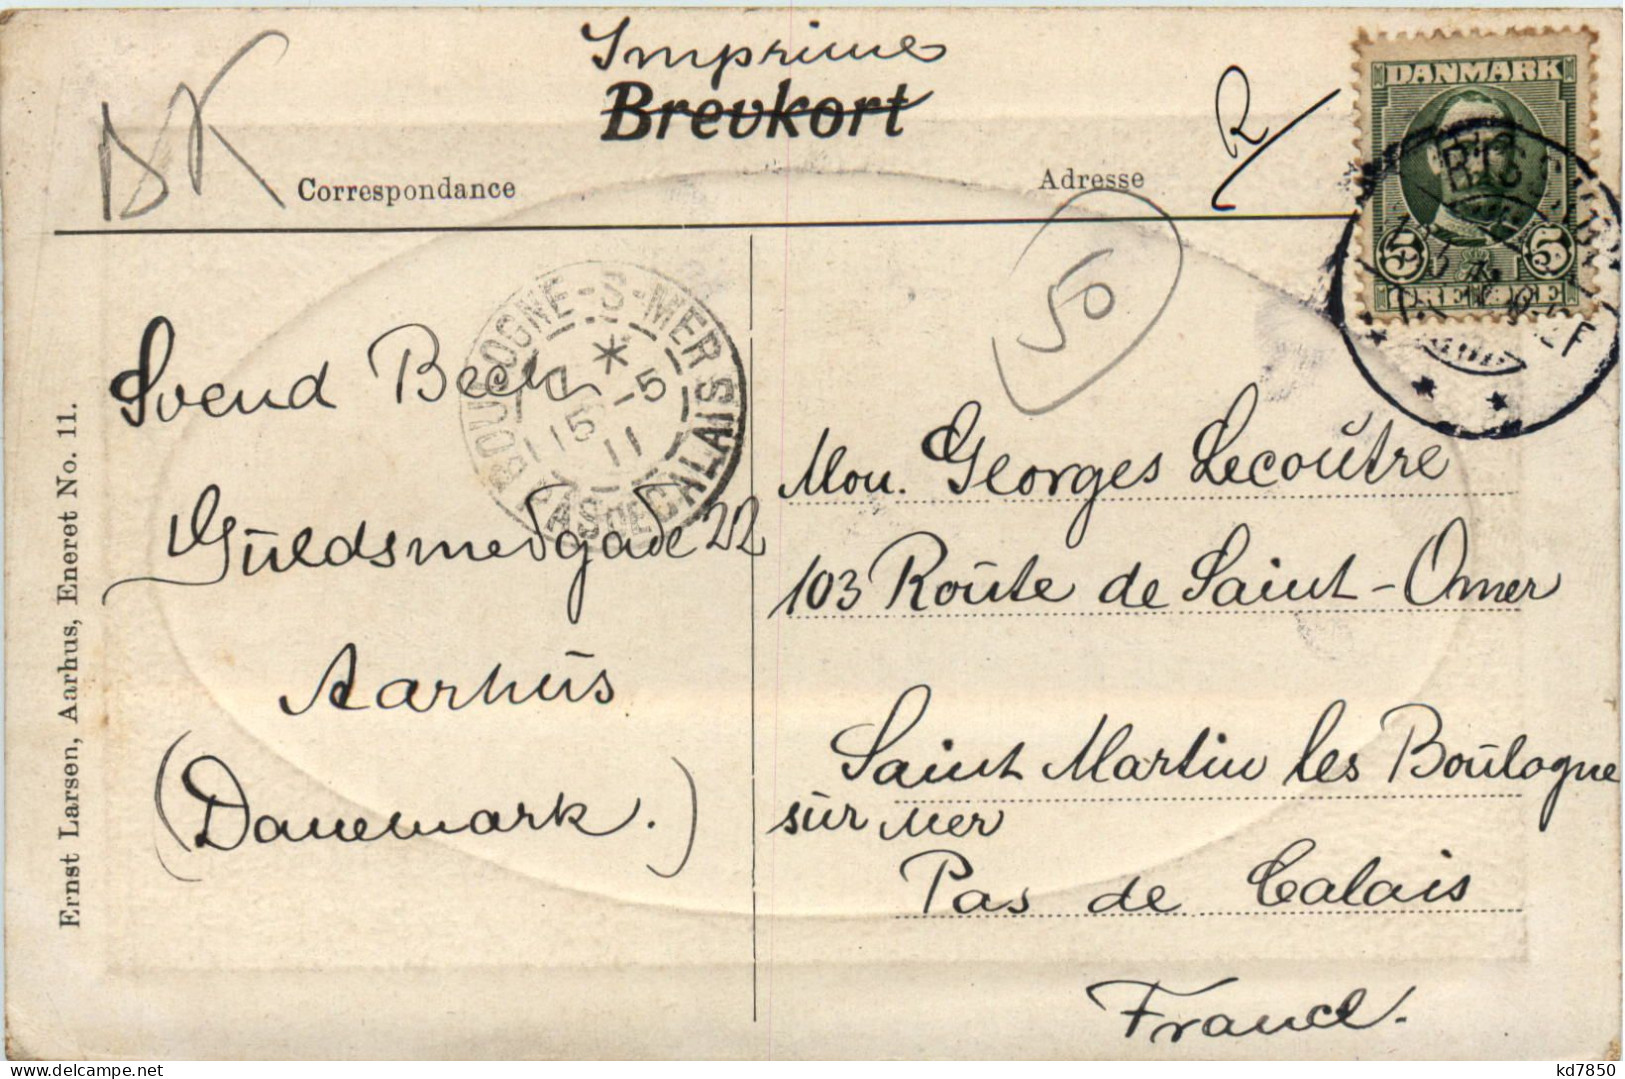 Imprime
Brevkort
DK
R
Correspondance
Adresse
DANMARK
5 5
50
BOULOGNE-S-MER
* 
15 -5
11
PAS DE CALAIS
Svend Beck
Guldsmedgade 22
Aarhus
(Danemark.)
Mon. Georges Lecoutre
103 Route de Saint-Omer
Saint Martin les Boulogne
sur mer
Pas de Calais
France.
Ernst Larsen, Aarhus, Eneret No. 11.
kd7850